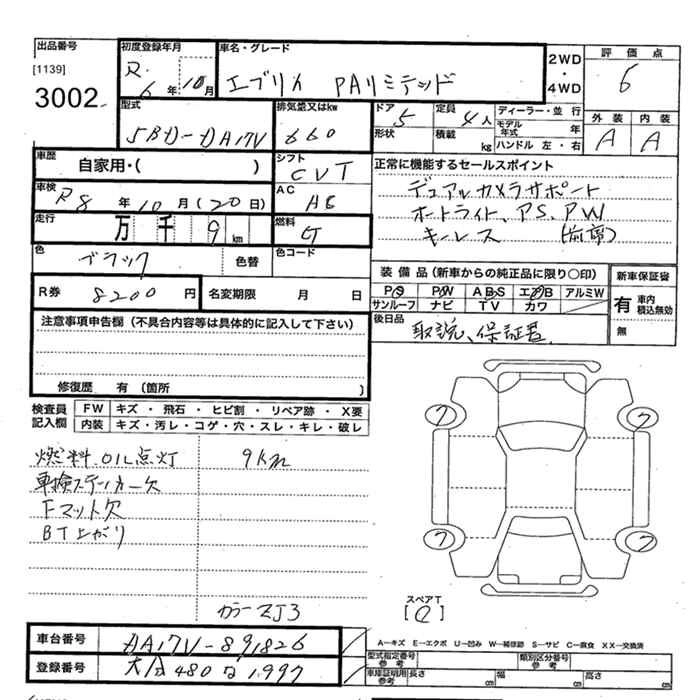 出品番号
[1139]
3002
初度登録年月
R. 6年 10月
車名・グレード
エブリイ PAリミテッド
2WD・4WD
評価点
6
外装 内装
A A
型式
5BD-DA17V
排気量又はkw
660
ドア
5
形状
定員
4人
積載 kg
ディーラー・並行
モデル年式 年
ハンドル 左・右
車歴
自家用・( )
シフト
CVT
正常に機能するセールスポイント
デュアルカメラサポート
オートライト、PS、PW
キーレス (前席)
車検
R8年10月(20日)
AC
走行
万 千 9 km
燃料
G
色
ブラック
色替
色コード
R券
8200円
名変期限 月 日
装備品(新車からの純正品に限り〇印)
P/S P/W ABS エアB アルミW
サンルーフ ナビ TV カワ
新車保証書
有 車内積込無効
無
後日品
取説、保証書
注意事項申告欄(不具合内容等は具体的に記入して下さい)
修復歴 有(箇所 )
検査員記入欄
FW キズ・飛石・ヒビ割・リペア跡・X要
内装 キズ・汚レ・コゲ・穴・スレ・キレ・破レ
燃料OIL点灯 9km
車検ステッカー欠
Fマット欠
BT上がり
カラーZJ3
7 7
7 7
スペアT
[ ]
車台番号
DA17V-891826
登録番号
480 1997
A―キズ E―エクボ U―凹み W―補修跡 S―サビ C―腐食 XX―交換済
型式指定番号 参考
類別区分番号 参考
車庫証明用 参考 長さ cm 幅 cm 高さ cm